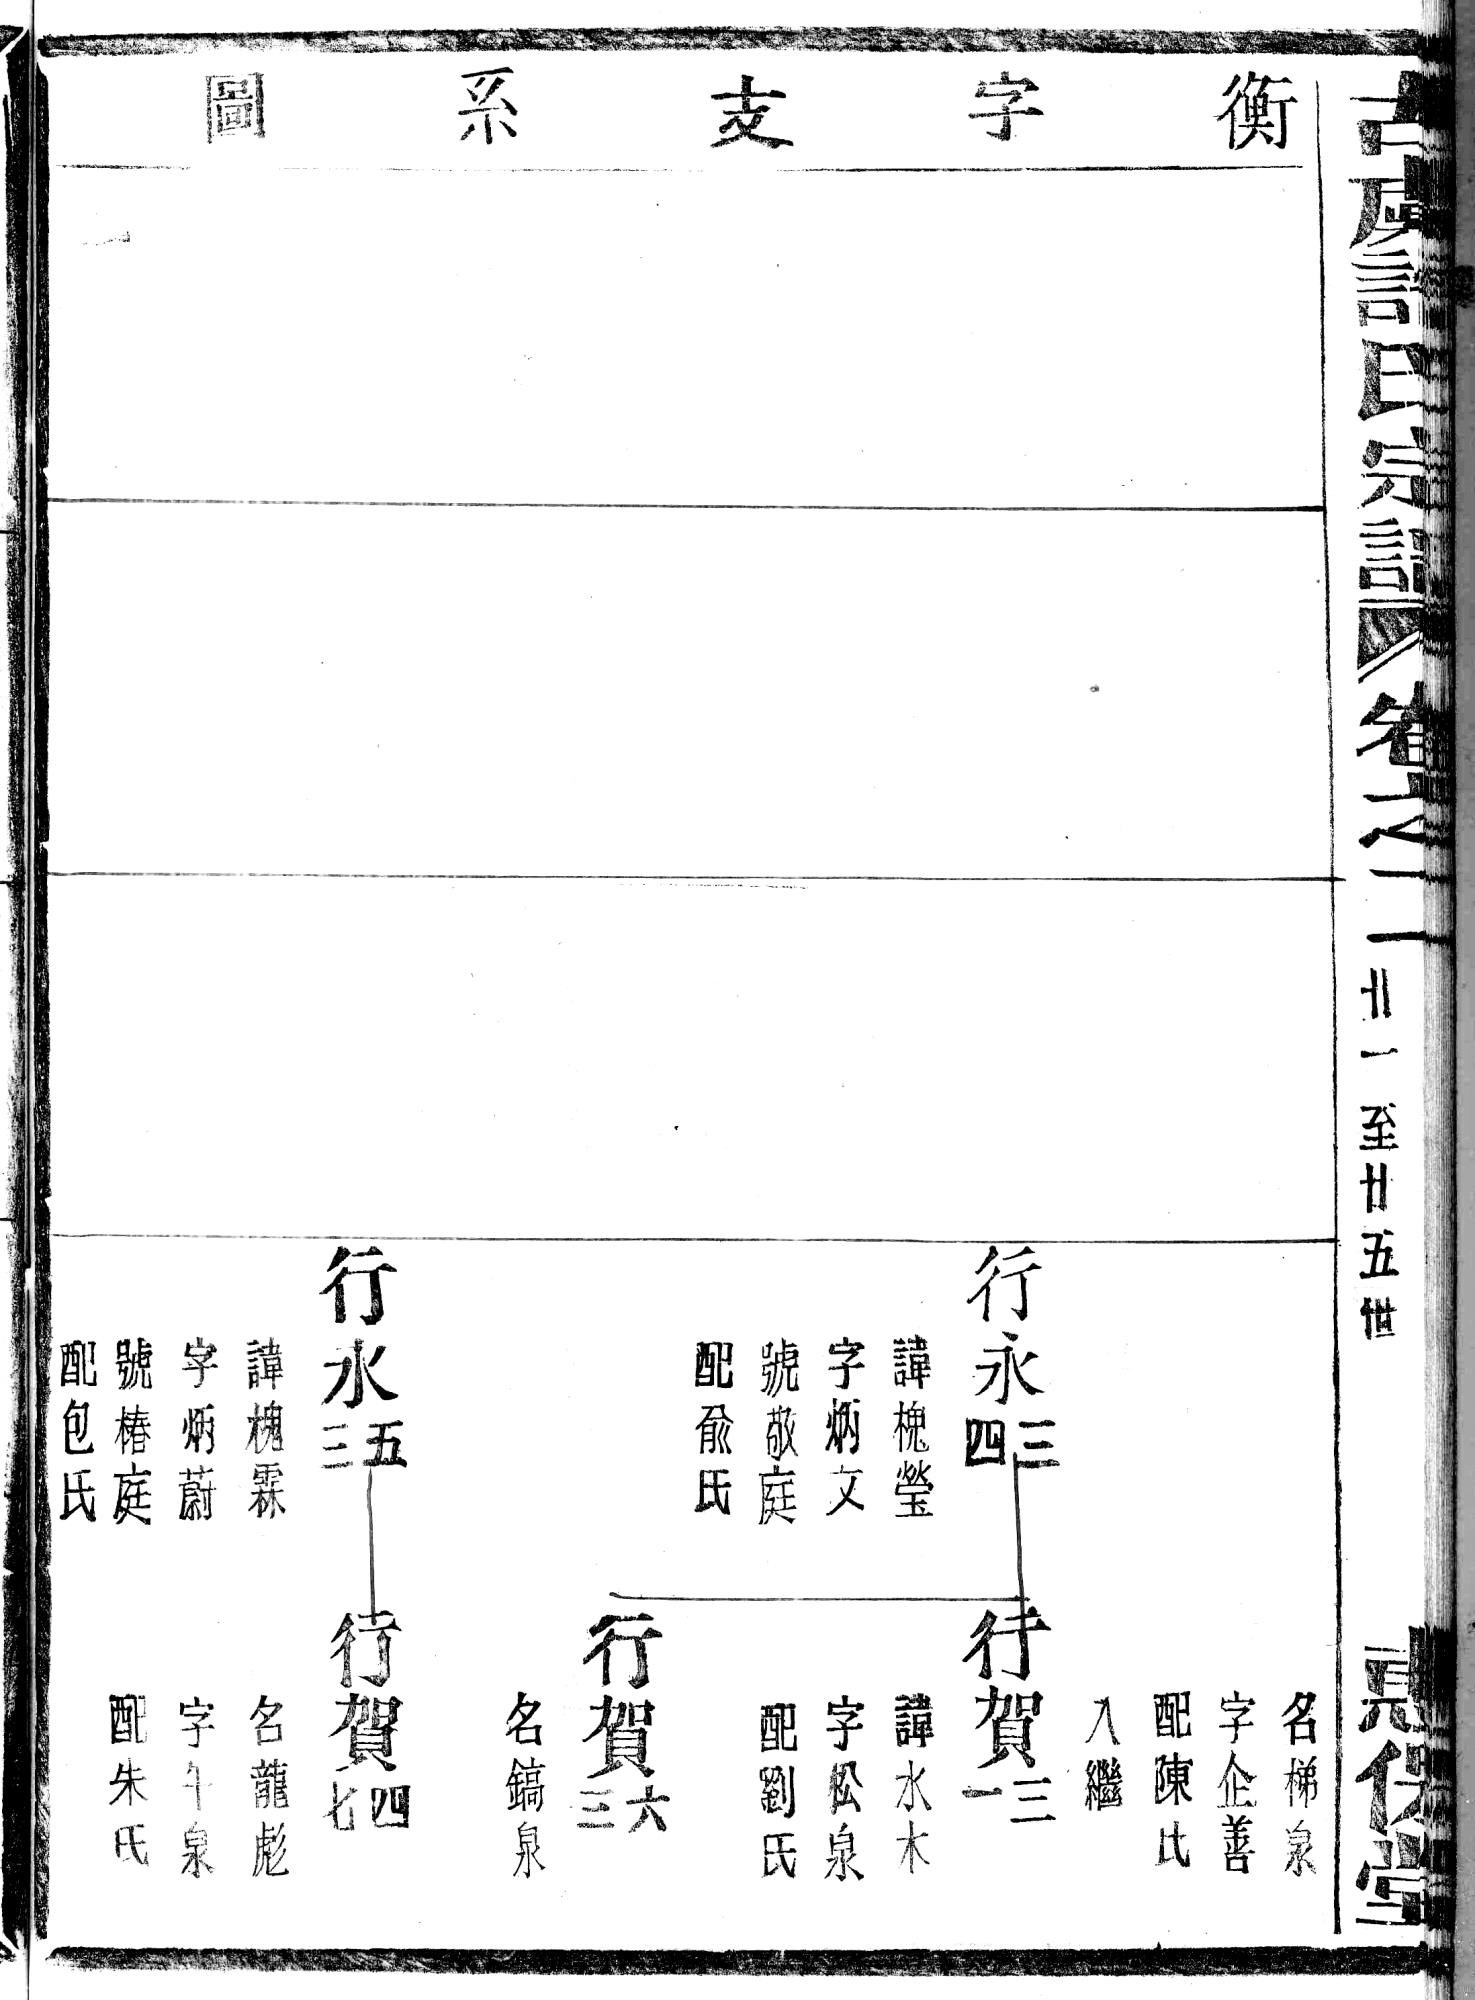 衡字支系圖
古虞許氏宗譜
卷之二
廿一至廿五世
行永三四
諱槐瑩
字炳文
號敬庭
配俞氏
行水五三
諱槐霖
字炳蔚
號椿庭
配包氏
名梯泉
字企善
配陳氏
入繼
行賀三一
諱水木
字松泉
配劉氏
行賀六三
名鎬泉
行賀四七
名龍彪
字午泉
配朱氏